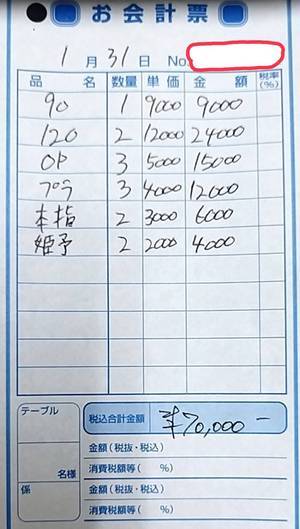 お会計票
1月31日 No.
品名 数量 単価 金額 税率(%)
90 1 9000 9000
120 2 12000 24000
OP 3 5000 15000
プラ 3 4000 12000
本指 2 3000 6000
姫予 2 2000 4000
テーブル 税込合計金額 ¥70,000-
名様 金額(税抜・税込)
消費税額等( %)
係 金額(税抜・税込)
消費税額等( %)